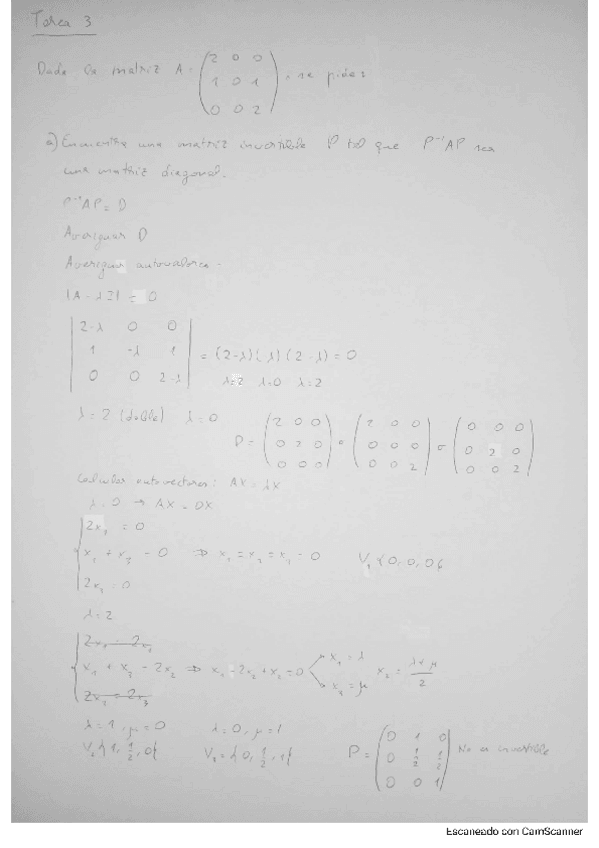 Tarea 3
Dada la matriz A = (2 0 0 / 1 0 1 / 0 0 2), se pide:
a) Encuentra una matriz invertible P tal que P⁻¹AP sea
una matriz diagonal.
P⁻¹AP = D
Averiguar D
Averiguar autovalores
|A - λI| = 0
|2-λ 0 0 / 1 -λ 1 / 0 0 2-λ| = (2-λ)( λ)(2-λ) = 0
λ=2 λ=0 λ=2
λ = 2 (doble) λ = 0
D = (2 0 0 / 0 2 0 / 0 0 0) o (2 0 0 / 0 0 0 / 0 0 2) o (0 0 0 / 0 2 0 / 0 0 2)
Calcular autovectores: AX = λX
λ = 0 → AX = 0X
2x₁ = 0
x₁ + x₃ = 0 ⇒ x₁ = x₂ = x₃ = 0 V₁{0, 0, 0}
2x₃ = 0
λ = 2
2x₁ = 2x₁
x₁ + x₃ = 2x₂ ⇒ x₁ - 2x₂ + x₃ = 0 x₁ = λ x₃ = μ x₂ = λ+μ / 2
2x₃ = 2x₃
λ = 1, μ = 0 λ = 0, μ = 1
V₂{1, 1/2, 0} V₃ = {0, 1/2, 1}
P = (0 1 0 / 0 1/2 1/2 / 0 0 1) No es invertible
Escaneado con CamScanner